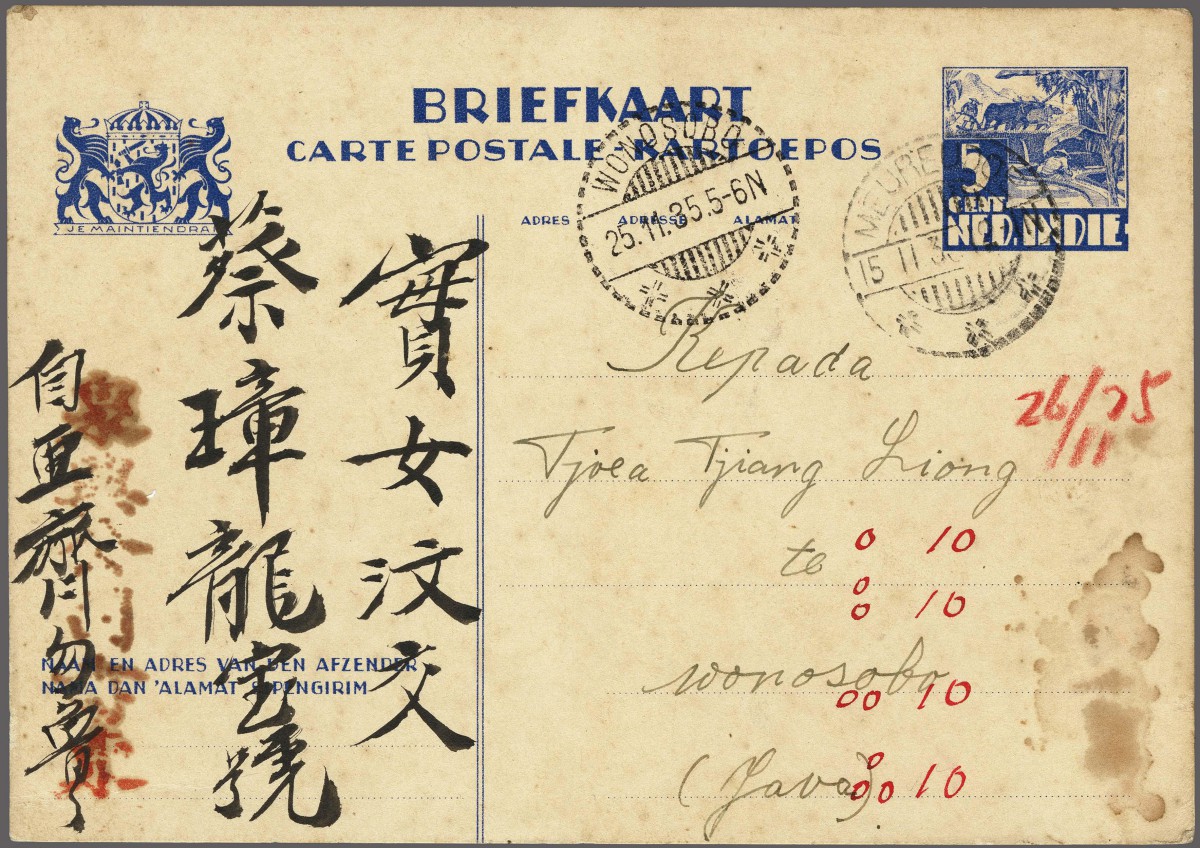 BRIEFKAART
CARTE POSTALE KARTOEPOS
JE MAINTIENDRAI
ADRES ADRESSE ALAMAT
5
CENT
NED. INDIE
WONOSOBO
25.11.35.5-6N
MEUREUDOE
15 11 3
Kepada
Tjoea Tjiang Liong
te
wonosobo
(Java)
26/25
11
o 10
o
o 10
oo 10
o
oo 10
寶女汶交
蔡璋龍宝號
自亞齊
NAAM EN ADRES VAN DEN AFZENDER
NAMA DAN 'ALAMAT SIPENGIRIM